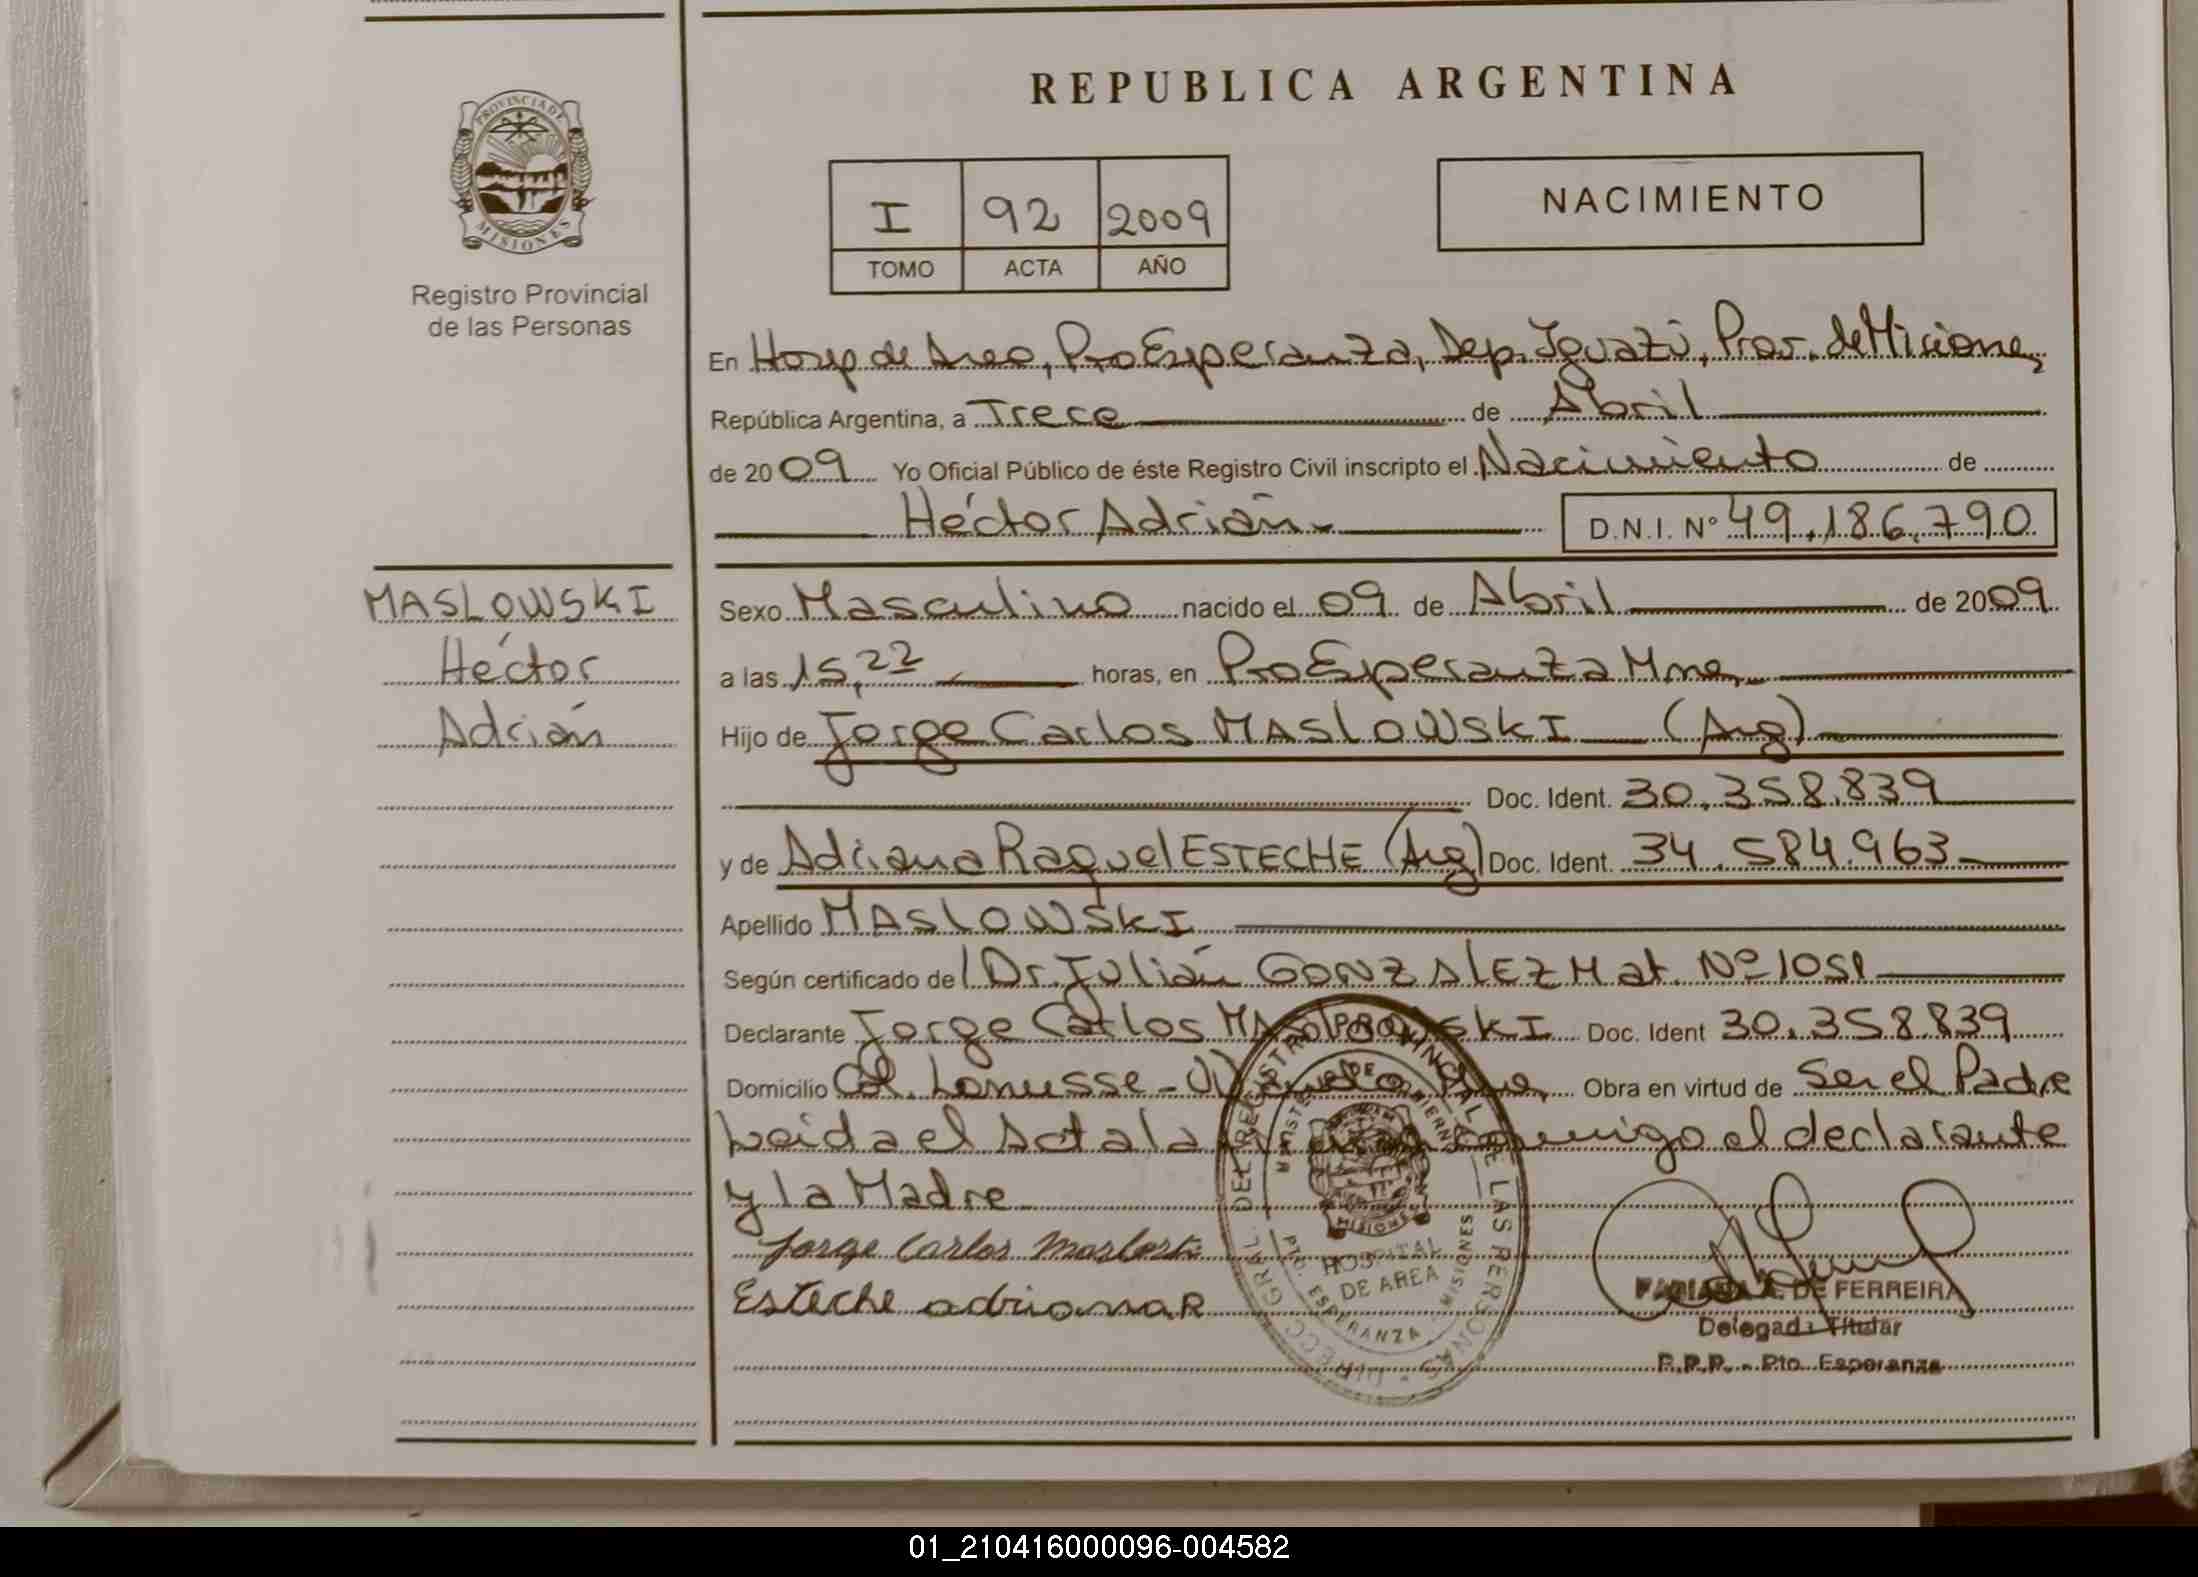 REPUBLICA ARGENTINA
PROVINCIA DE
MISIONES
Registro Provincial
de las Personas
I 92 2009
TOMO ACTA AÑO
NACIMIENTO
En Hosp de Area, Pto Esperanza, Dep. Iguazú, Prov. de Misiones,
República Argentina, a Trece de Abril
de 2009 Yo Oficial Público de éste Registro Civil inscripto el Nacimiento de
Héctor Adrián.- D.N.I. Nº 49.186.790
MASLOWSKI
Héctor
Adrián
Sexo Masculino nacido el 09 de Abril de 2009
a las 15,22 horas, en Pto Esperanza Mnes
Hijo de Jorge Carlos MASLOWSKI (Arg)
Doc. Ident. 30.358.839
y de Adriana Raquel ESTECHE (Arg) Doc. Ident. 34.584.963
Apellido MASLOWSKI
Según certificado de Dr. Julián GONZALEZ Mat. Nº 1051
Declarante Jorge Carlos MASLOWSKI Doc. Ident 30.358.839
Domicilio Col. Lanusse - Obra en virtud de Ser el Padre
Leida el Acta la conmigo el declarante
y la Madre
Jorge Carlos
Esteche adriana R
DIRECC. GRAL. DEL REGISTRO PROVINCIAL DE LAS PERSONAS
MINISTERIO DE GOBIERNO
MISIONES
HOSPITAL
DE AREA
PTO. ESPERANZA - MISIONES
DE FERREIRA
Delegada Titular
R.P.P. - Pto. Esperanza
01_210416000096-004582